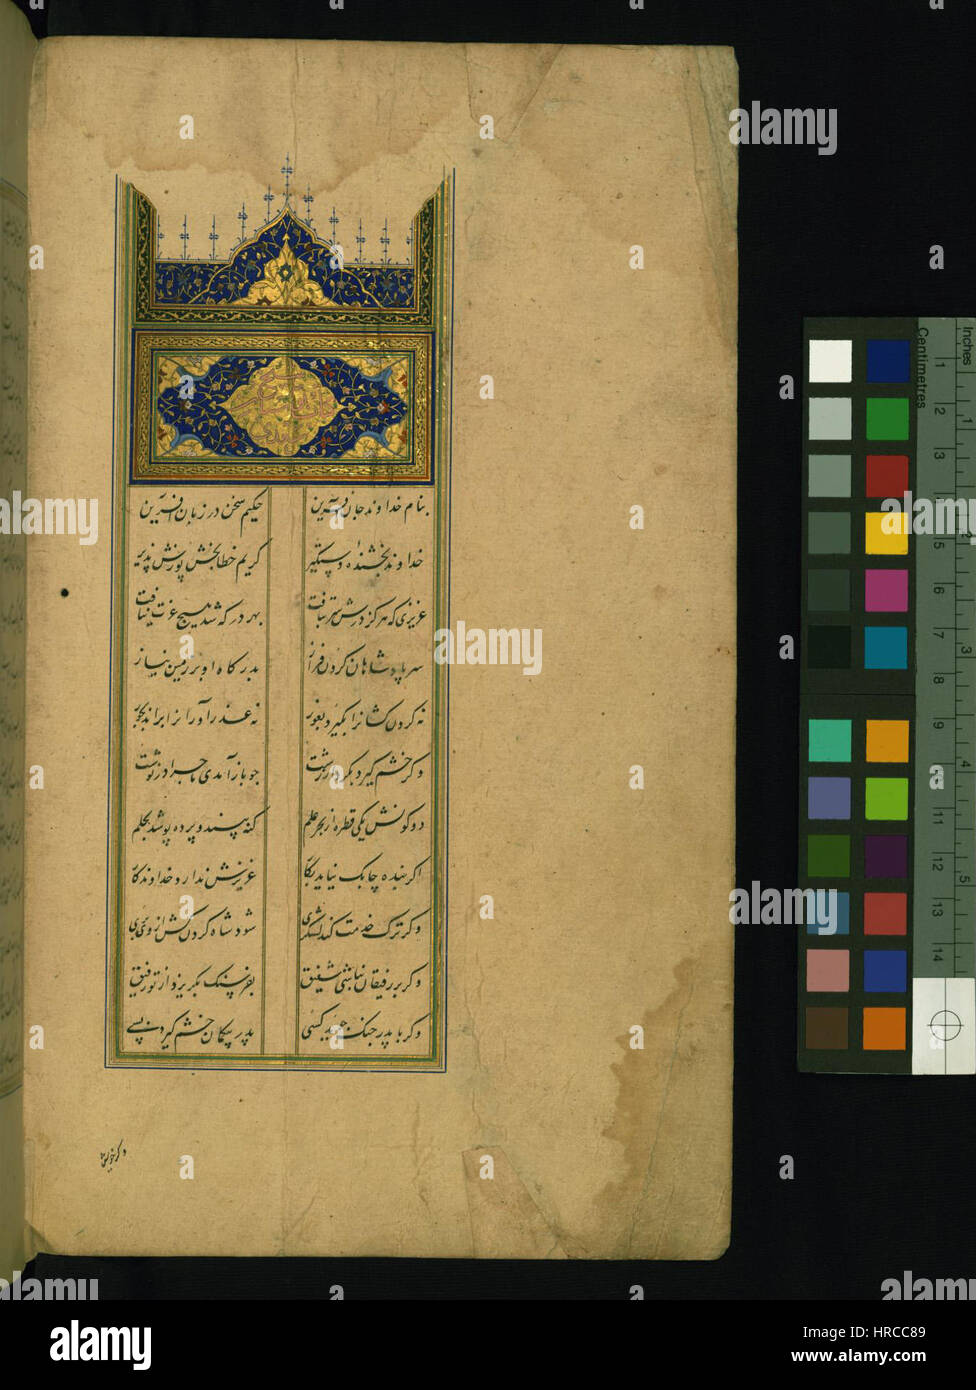 بنام خداوند جان آفرین حکیم سخن در زبان آفرین
خداوند بخشنده دستگیر کریم خطابخش پوزش پذیر
عزیزی که هر کز درش سر بتافت بهر در که شد هیچ عزت نیافت
سر پادشاهان کردن فراز بدرکاه او بر زمین نیاز
نه کردن کشانرا بگیرد بفور نه عذرآورانرا براند بجور
وکر خشم کیرد بکردار زشت چو بازآمدی ماجرا درنوشت
دو کونش یکی قطره از بحر علم کنه بیند و پرده پوشد بحلم
اکر بنده چابک نیاید بکار عزیزش ندارد خداوندکار
وکر ترک خدمت کند لشکری شود شاه کردن کش از وی بری
وکر بر رفیقان نباشی شفیق بفرسنک بکریزد از تو رفیق
وکر با پدر جنک جوید کسی پدر بیکمان خشم کیرد بسی
وکر خویش
Inches
Centimetres
1 2 3 5 6 7 8 9 11 12 13 14
1 3 4 5
alamy
alamy
Image ID: HRCC89
www.alamy.com